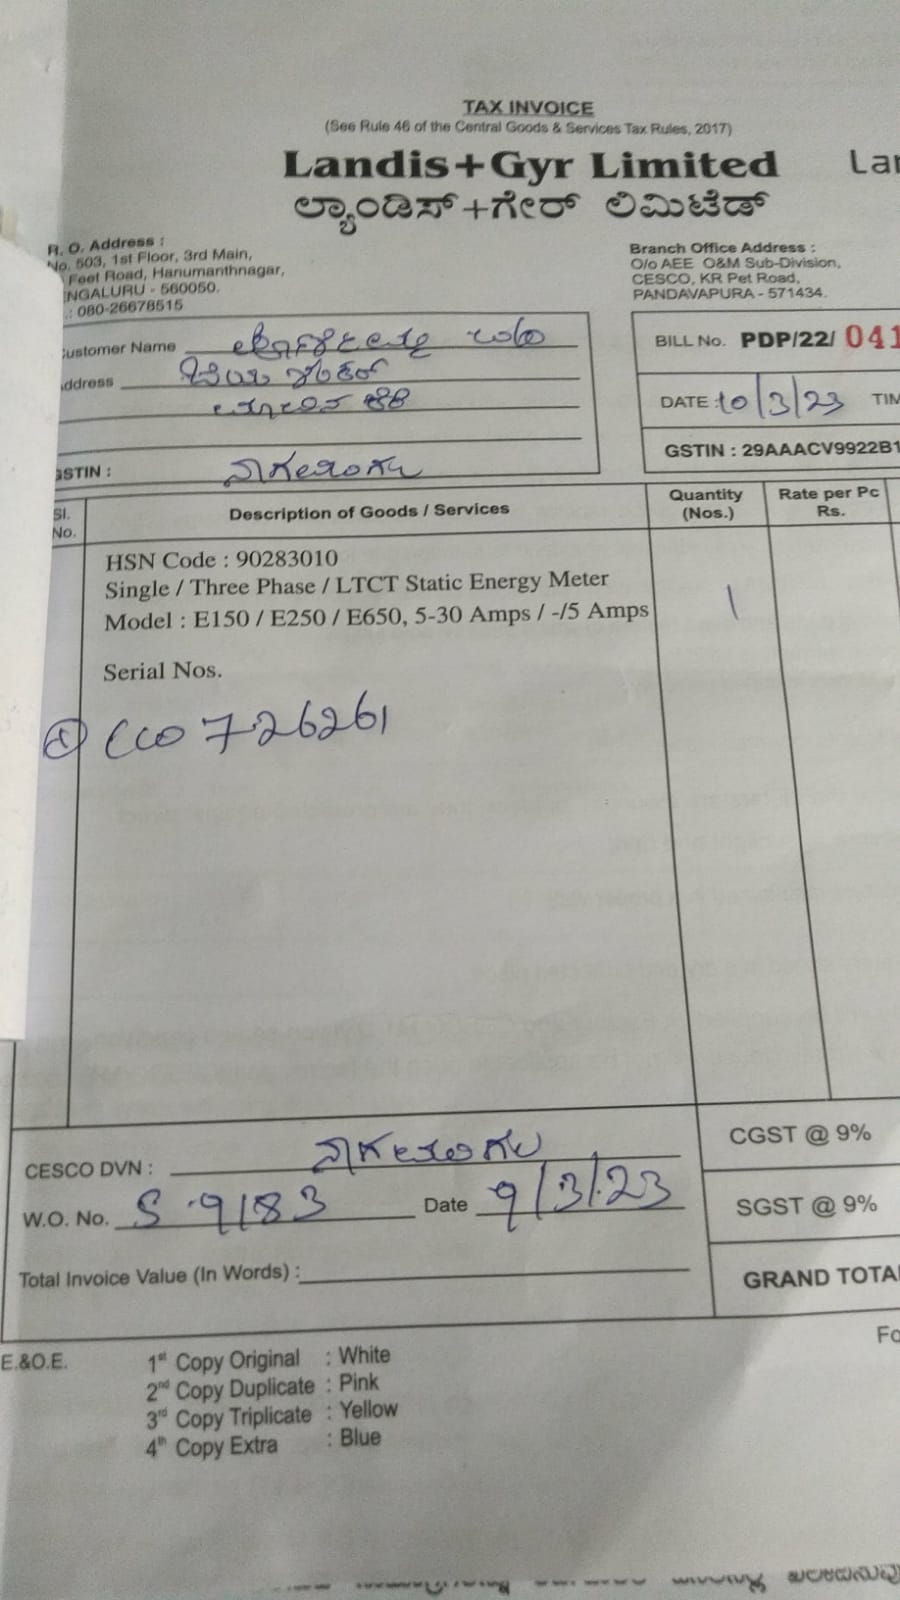 TAX INVOICE
(See Rule 46 of the Central Goods & Services Tax Rules, 2017)
Landis+Gyr Limited
Lan
ಲ್ಯಾಂಡಿಸ್+ಗೇರ್ ಲಿಮಿಟೆಡ್
R. O. Address :
No. 503, 1st Floor, 3rd Main,
Feet Road, Hanumanthnagar,
ENGALURU - 560050.
.: 080-26678515
Branch Office Address :
O/o AEE O&M Sub-Division,
CESCO, KR Pet Road,
PANDAVAPURA - 571434.
Customer Name
Address
BILL No. PDP/22/ 041
DATE : 10/3/23 TIM
GSTIN : 29AAACV9922B1
GSTIN : ನಾಗಮಂಗಲ
Sl. No.
Description of Goods / Services
Quantity (Nos.)
Rate per Pc Rs.
HSN Code : 90283010
Single / Three Phase / LTCT Static Energy Meter
Model : E150 / E250 / E650, 5-30 Amps / -/5 Amps
1
Serial Nos.
① 726261
CESCO DVN : ನಾಗಮಂಗಲ
W.O. No. S-9183 Date 9/3/23
Total Invoice Value (In Words) :
CGST @ 9%
SGST @ 9%
GRAND TOTA
Fo
E.&O.E.
1st Copy Original : White
2nd Copy Duplicate : Pink
3rd Copy Triplicate : Yellow
4th Copy Extra : Blue